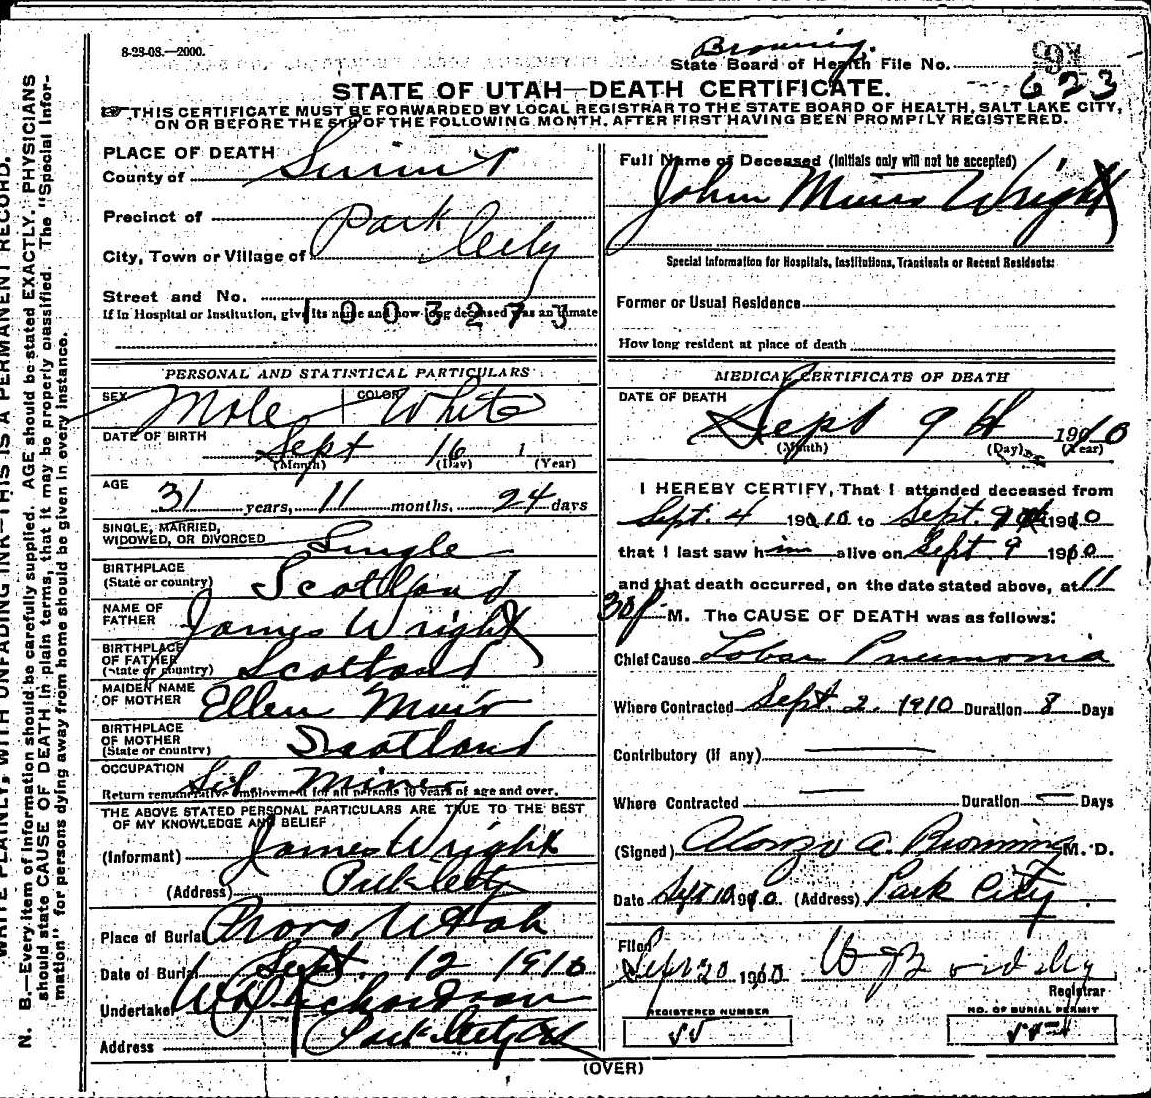 8-23-08.—2000.
Browning.
State Board of Health File No.
623
STATE OF UTAH—DEATH CERTIFICATE.
THIS CERTIFICATE MUST BE FORWARDED BY LOCAL REGISTRAR TO THE STATE BOARD OF HEALTH, SALT LAKE CITY,
ON OR BEFORE THE 5TH OF THE FOLLOWING MONTH, AFTER FIRST HAVING BEEN PROMPTLY REGISTERED.
PLACE OF DEATH
County of Summit
Precinct of Park City
City, Town or Village of
Street and No.
1003273
If in Hospital or Institution, give its name and how long deceased was an inmate
PERSONAL AND STATISTICAL PARTICULARS
SEX Male COLOR White
DATE OF BIRTH
Sept 16 1
(Month) (Day) (Year)
AGE
31 years, 11 months, 24 days
SINGLE, MARRIED,
WIDOWED, OR DIVORCED Single
BIRTHPLACE
(State or country) Scotland
NAME OF
FATHER James Wright
BIRTHPLACE
OF FATHER
(State or country) Scotland
MAIDEN NAME
OF MOTHER Ellen Muir
BIRTHPLACE
OF MOTHER
(State or country) Scotland
OCCUPATION
Miner
Return remunerative employment for all persons 10 years of age and over.
THE ABOVE STATED PERSONAL PARTICULARS ARE TRUE TO THE BEST
OF MY KNOWLEDGE AND BELIEF
(Informant) James Wright
(Address) Park City
Place of Burial Provo Utah
Date of Burial Sept. 12 1910
Undertaker W Richardson
Address Park City
Full Name of Deceased (Initials only will not be accepted)
John Muir Wright
Special Information for Hospitals, Institutions, Transients or Recent Residents:
Former or Usual Residence
How long resident at place of death
MEDICAL CERTIFICATE OF DEATH
DATE OF DEATH
Sept 9th 1910
(Month) (Day) (Year)
I HEREBY CERTIFY, That I attended deceased from
Sept. 4 1910 to Sept. 9 1910
that I last saw him alive on Sept. 9 1910
and that death occurred, on the date stated above, at 11
30 P M. The CAUSE OF DEATH was as follows:
Chief Cause Lobar Pneumonia
Where Contracted Sept. 2. 1910 Duration 8 Days
Contributory (if any)
Where Contracted Duration Days
(Signed) Alonzo A. Browning M. D.
Date Sept 10 1910. (Address) Park City
Filed
Sept 20 1910
Registrar
REGISTERED NUMBER
55
NO. OF BURIAL PERMIT
(OVER)
N. B.—Every item of information should be carefully supplied. AGE should be stated EXACTLY. PHYSICIANS
should state CAUSE OF DEATH in plain terms, that it may be properly classified. The "Special Infor-
mation" for persons dying away from home should be given in every instance.
WRITE PLAINLY, WITH UNFADING INK—THIS IS A PERMANENT RECORD.